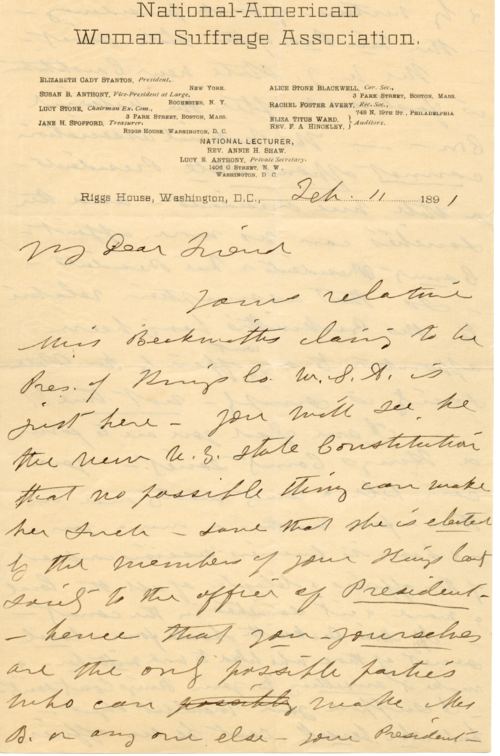 National-American
Woman Suffrage Association.
ELIZABETH CADY STANTON, President,
NEW YORK.
SUSAN B. ANTHONY, Vice-President at Large,
ROCHESTER, N. Y.
LUCY STONE, Chairman Ex. Com.,
3 PARK STREET, BOSTON, MASS.
JANE H. SPOFFORD, Treasurer,
RIGGS HOUSE, WASHINGTON, D. C.
ALICE STONE BLACKWELL, Cor. Sec.,
3 PARK STREET, BOSTON, MASS.
RACHEL FOSTER AVERY, Rec. Sec.,
748 N. 19TH ST., PHILADELPHIA
ELIZA TITUS WARD, } Auditors.
REV. F. A. HINCKLEY, }
NATIONAL LECTURER,
REV. ANNIE H. SHAW.
LUCY E. ANTHONY, Private Secretary.
1406 G STREET, N. W.,
WASHINGTON, D. C.
Riggs House, Washington, D.C., Feb. 11 1891
My Dear Friend
Yours relative
Miss Beckwith's claim to be
Pres. of Kings Co. W. S. A. is
just here - you will see be
the new N. Y. State Constitution
that no possible thing can make
her such - save that she is elected
by the members of your Kings Co
society to the office of President -
- hence that you yourselves
are the only possible parties
who can possibly make Mrs
B. or any one else - your President -